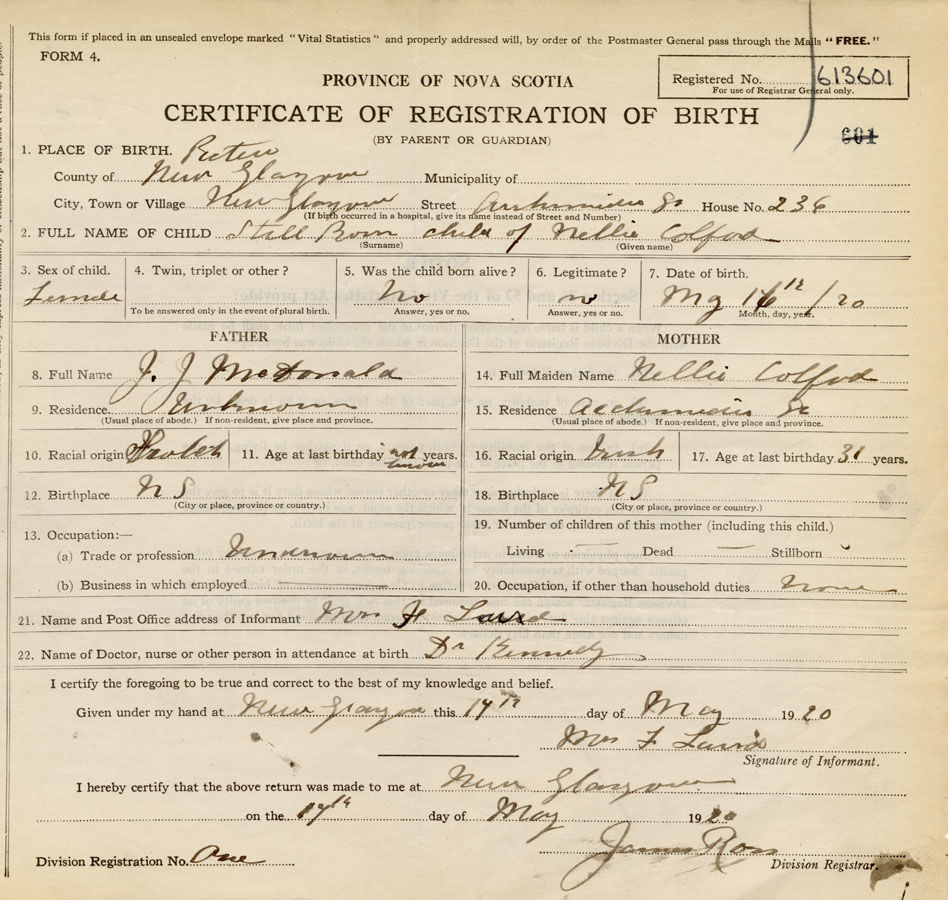 This form if placed in an unsealed envelope marked "Vital Statistics" and properly addressed will, by order of the Postmaster General pass through the Mails "FREE."
FORM 4.
PROVINCE OF NOVA SCOTIA
Registered No. 613601
For use of Registrar General only.
CERTIFICATE OF REGISTRATION OF BIRTH
(BY PARENT OR GUARDIAN)
601
1. PLACE OF BIRTH. Pictou
County of New Glasgow Municipality of
City, Town or Village New Glasgow Street Archimedes St House No. 236
(If birth occurred in a hospital, give its name instead of Street and Number)
2. FULL NAME OF CHILD Still Born child of Nellie Colford
(Surname) (Given name)
3. Sex of child. 4. Twin, triplet or other? 5. Was the child born alive? 6. Legitimate? 7. Date of birth.
Female No no My 16th /20
To be answered only in the event of plural birth. Answer, yes or no. Answer, yes or no. Month, day, year.
FATHER MOTHER
8. Full Name J. J McDonald 14. Full Maiden Name Nellie Colford
9. Residence. Unknown 15. Residence Archimedes St
(Usual place of abode.) If non-resident, give place and province. (Usual place of abode.) If non-resident, give place and province.
10. Racial origin Scotch 11. Age at last birthday not known years. 16. Racial origin Irish 17. Age at last birthday 31 years.
12. Birthplace N S 18. Birthplace N S
(City or place, province or country.) (City or place, province or country.)
13. Occupation:— 19. Number of children of this mother (including this child.)
(a) Trade or profession Unknown Living — Dead — Stillborn
(b) Business in which employed 20. Occupation, if other than household duties None
21. Name and Post Office address of Informant Mrs F
22. Name of Doctor, nurse or other person in attendance at birth Dr Kennedy
I certify the foregoing to be true and correct to the best of my knowledge and belief.
Given under my hand at New Glasgow this 17th day of May 1920
Mrs F
Signature of Informant.
I hereby certify that the above return was made to me at New Glasgow
on the 17th day of May 1920
James Ross
Division Registration No. One Division Registrar.